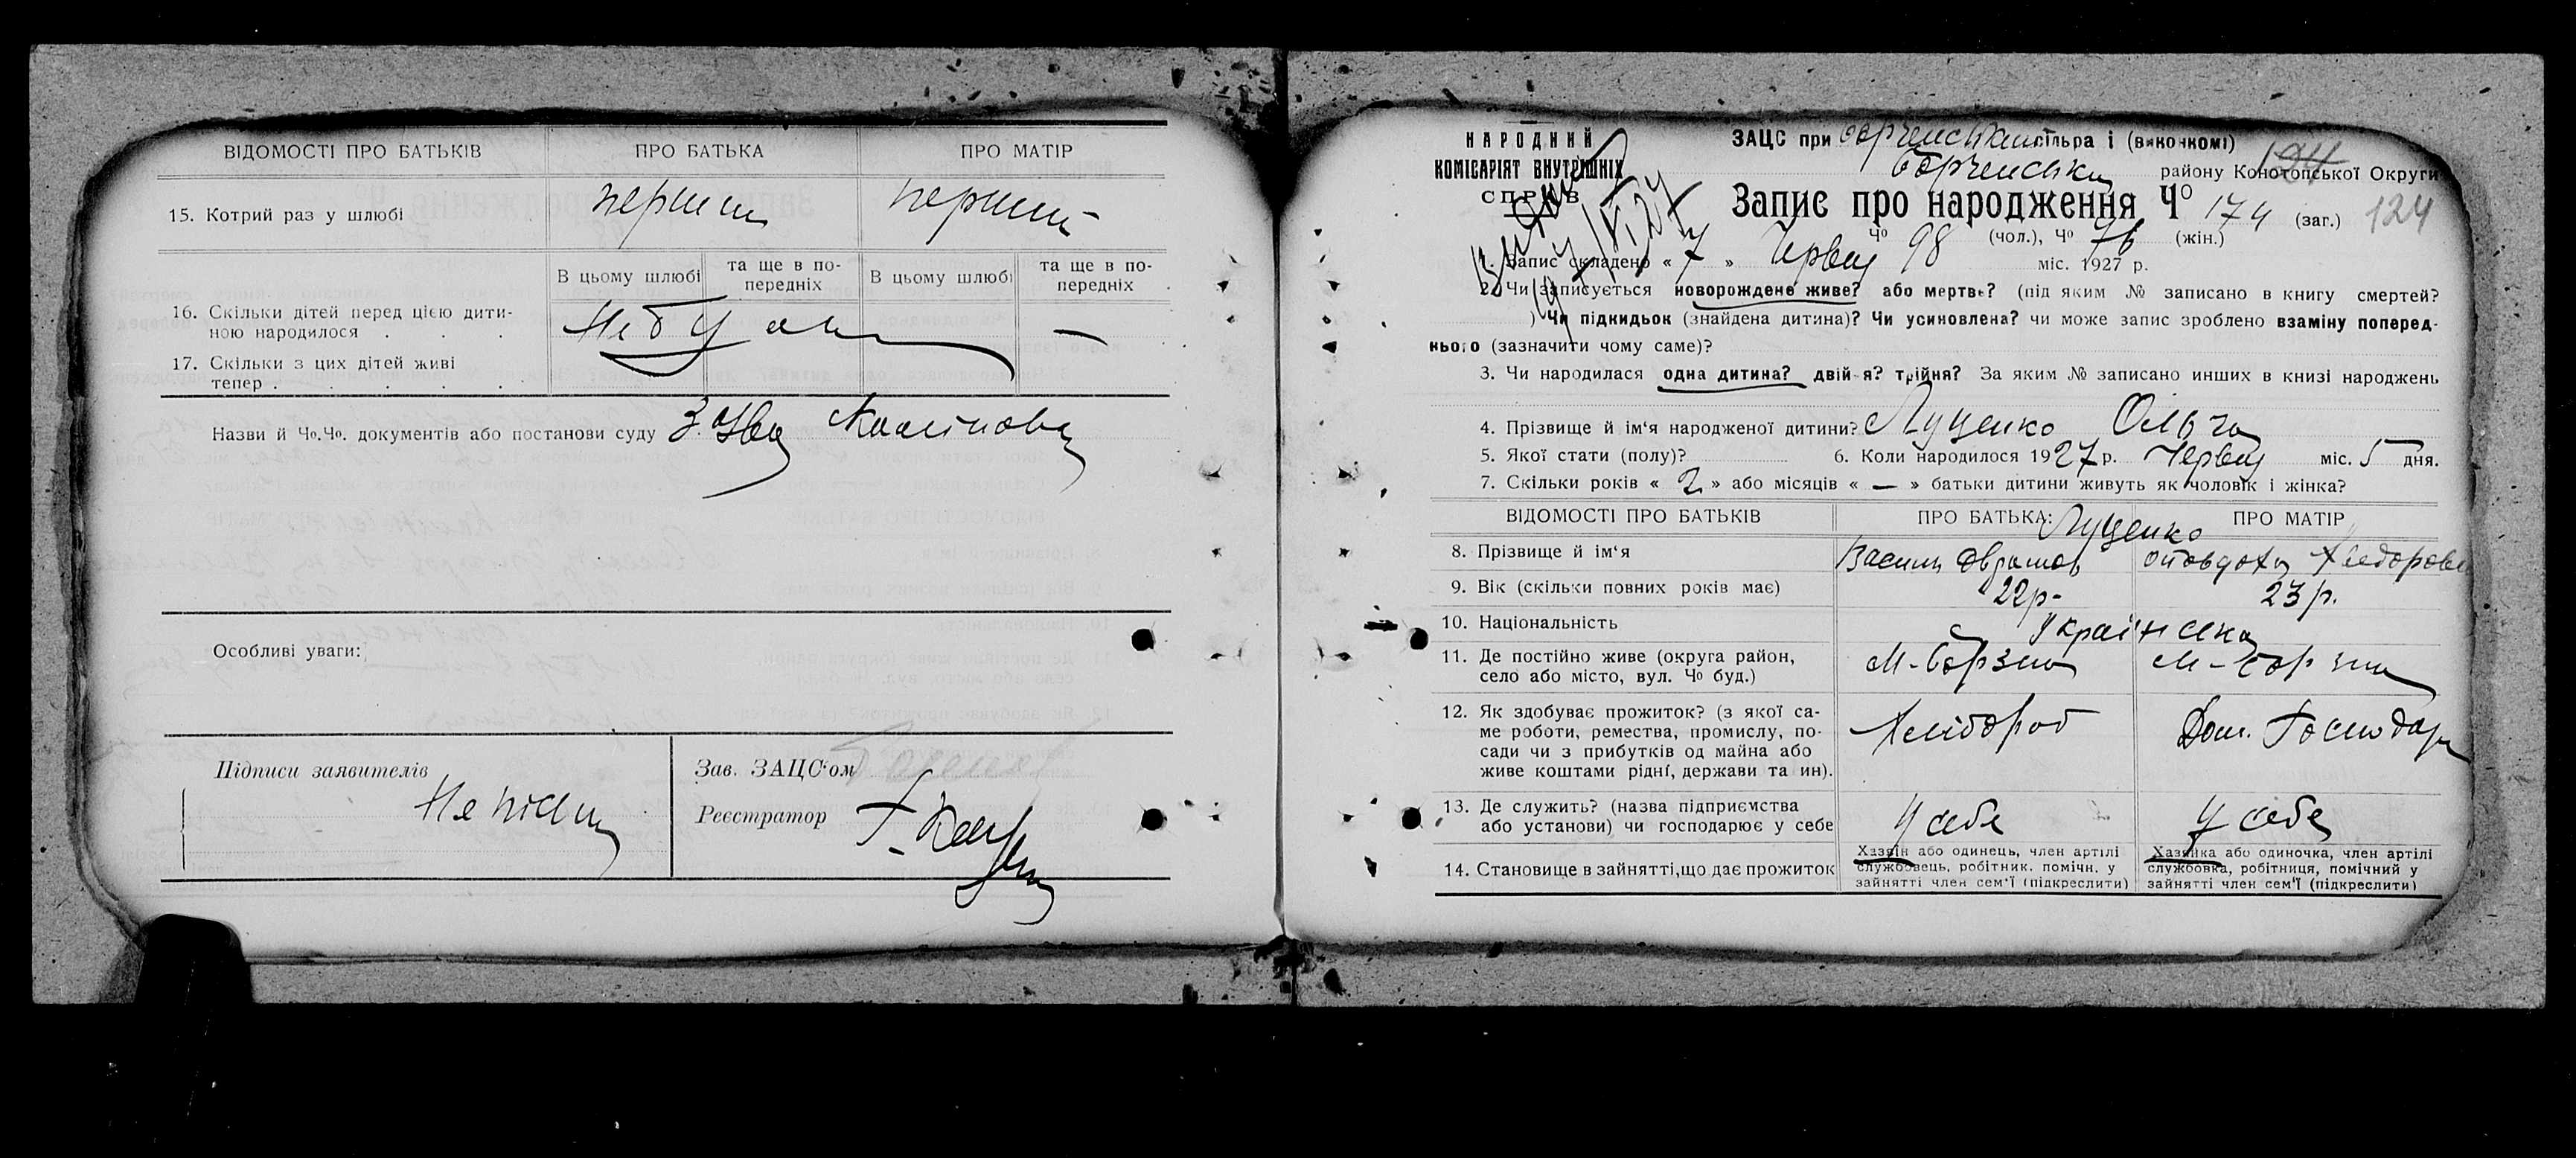 ВІДОМОСТІ ПРО БАТЬКІВ ПРО БАТЬКА ПРО МАТІР
15. Котрий раз у шлюбі перши перший
В цьому шлюбі та ще в по- В цьому шлюбі та ще в по-
передніх передніх
16. Скільки дітей перед цією дити-
ною народилося . . . —
17. Скільки з цих дітей живі
тепер . . . . .
Назви й Чо.Чо. документів або постанови суду
Особливі уваги:
Підписи заявителів Зав. ЗАЦС'ом
Реєстратор Г.
НАРОДНИЙ
КОМІСАРІЯТ ВНУТРІШНІХ
СПРАВ
ЗАЦС при сільра і (викочкомі)
району Конотопської Округи
Запис про народження Чо 174 (заг.) 124
Чо 98 (чол.), Чо 76 (жін.)
1. Запис складено « 7 » Червня міс. 1927 р.
2. Чи записується новорождене живе? або мертве? (під яким № записано в книгу смертей?
) Чи підкидьок (знайдена дитина)? Чи усиновлена? чи може запис зроблено взаміну поперед-
нього (зазначити чому саме)?
3. Чи народилася одна дитина? двійня? трійня? За яким № записано инших в книзі народжень
4. Прізвище й ім'я народженої дитини? Луценко Ольга
5. Якої стати (полу)? 6. Коли народилося 1927 р. Червня міс. 5 дня.
7. Скільки років « 2 » або місяців « — » батьки дитини живуть як чоловік і жінка?
ВІДОМОСТІ ПРО БАТЬКІВ ПРО БАТЬКА: ПРО МАТІР
Луценко
8. Прізвище й ім'я Василь
9. Вік (скільки повних років має) 22 р. 23 р.
10. Національність Українська
11. Де постійно живе (округа район,
село або місто, вул. Чо буд.) М-Борзна М-Борзна
12. Як здобуває прожиток? (з якої са-
ме роботи, ремества, промислу, по-
сади чи з прибутків од майна або
живе коштами рідні, держави та ин). Хлібороб Дом. Господар
13. Де служить? (назва підприємства
або установи) чи господарює у себе У себе У себе
14. Становище в зайнятті, що дає прожиток
Хазяїн або одинець, член артілі
службовець, робітник, помічн. у
зайнятті член сем'ї (підкреслити)
Хазяйка або одиночка, член артілі
службовка, робітниця, помічний у
зайнятті член сем'ї (підкреслити)